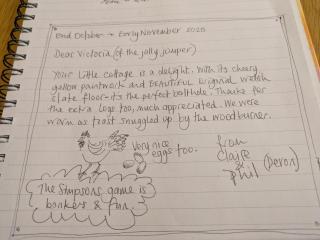 End October → Early November 2020
Dear Victoria (of the jolly jumper)
Your little cottage is a delight. With its cheery
yellow paintwork and beautiful original welsh
slate floor - it's the perfect bolthole. Thanks for
the extra logs too, much appreciated. We were
warm as toast snuggled up by the woodburner.
Very nice
eggs too.
from
Claire
&
Phil (Devon)
The Simpsons game is
bonkers & fun.